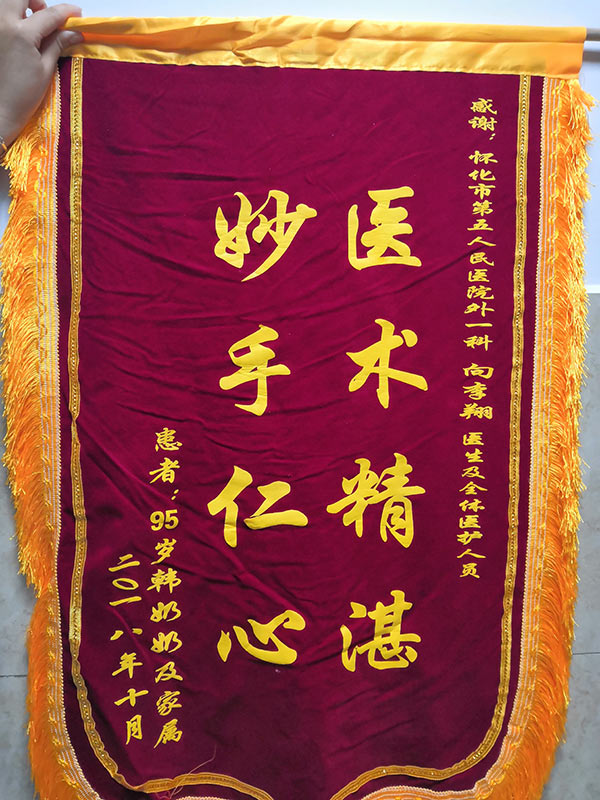 感谢：怀化市第五人民医院外一科 向李翔 医生及全体医护人员
医术精湛
妙手仁心
患者：95岁韩奶奶及家属
二〇一八年十月